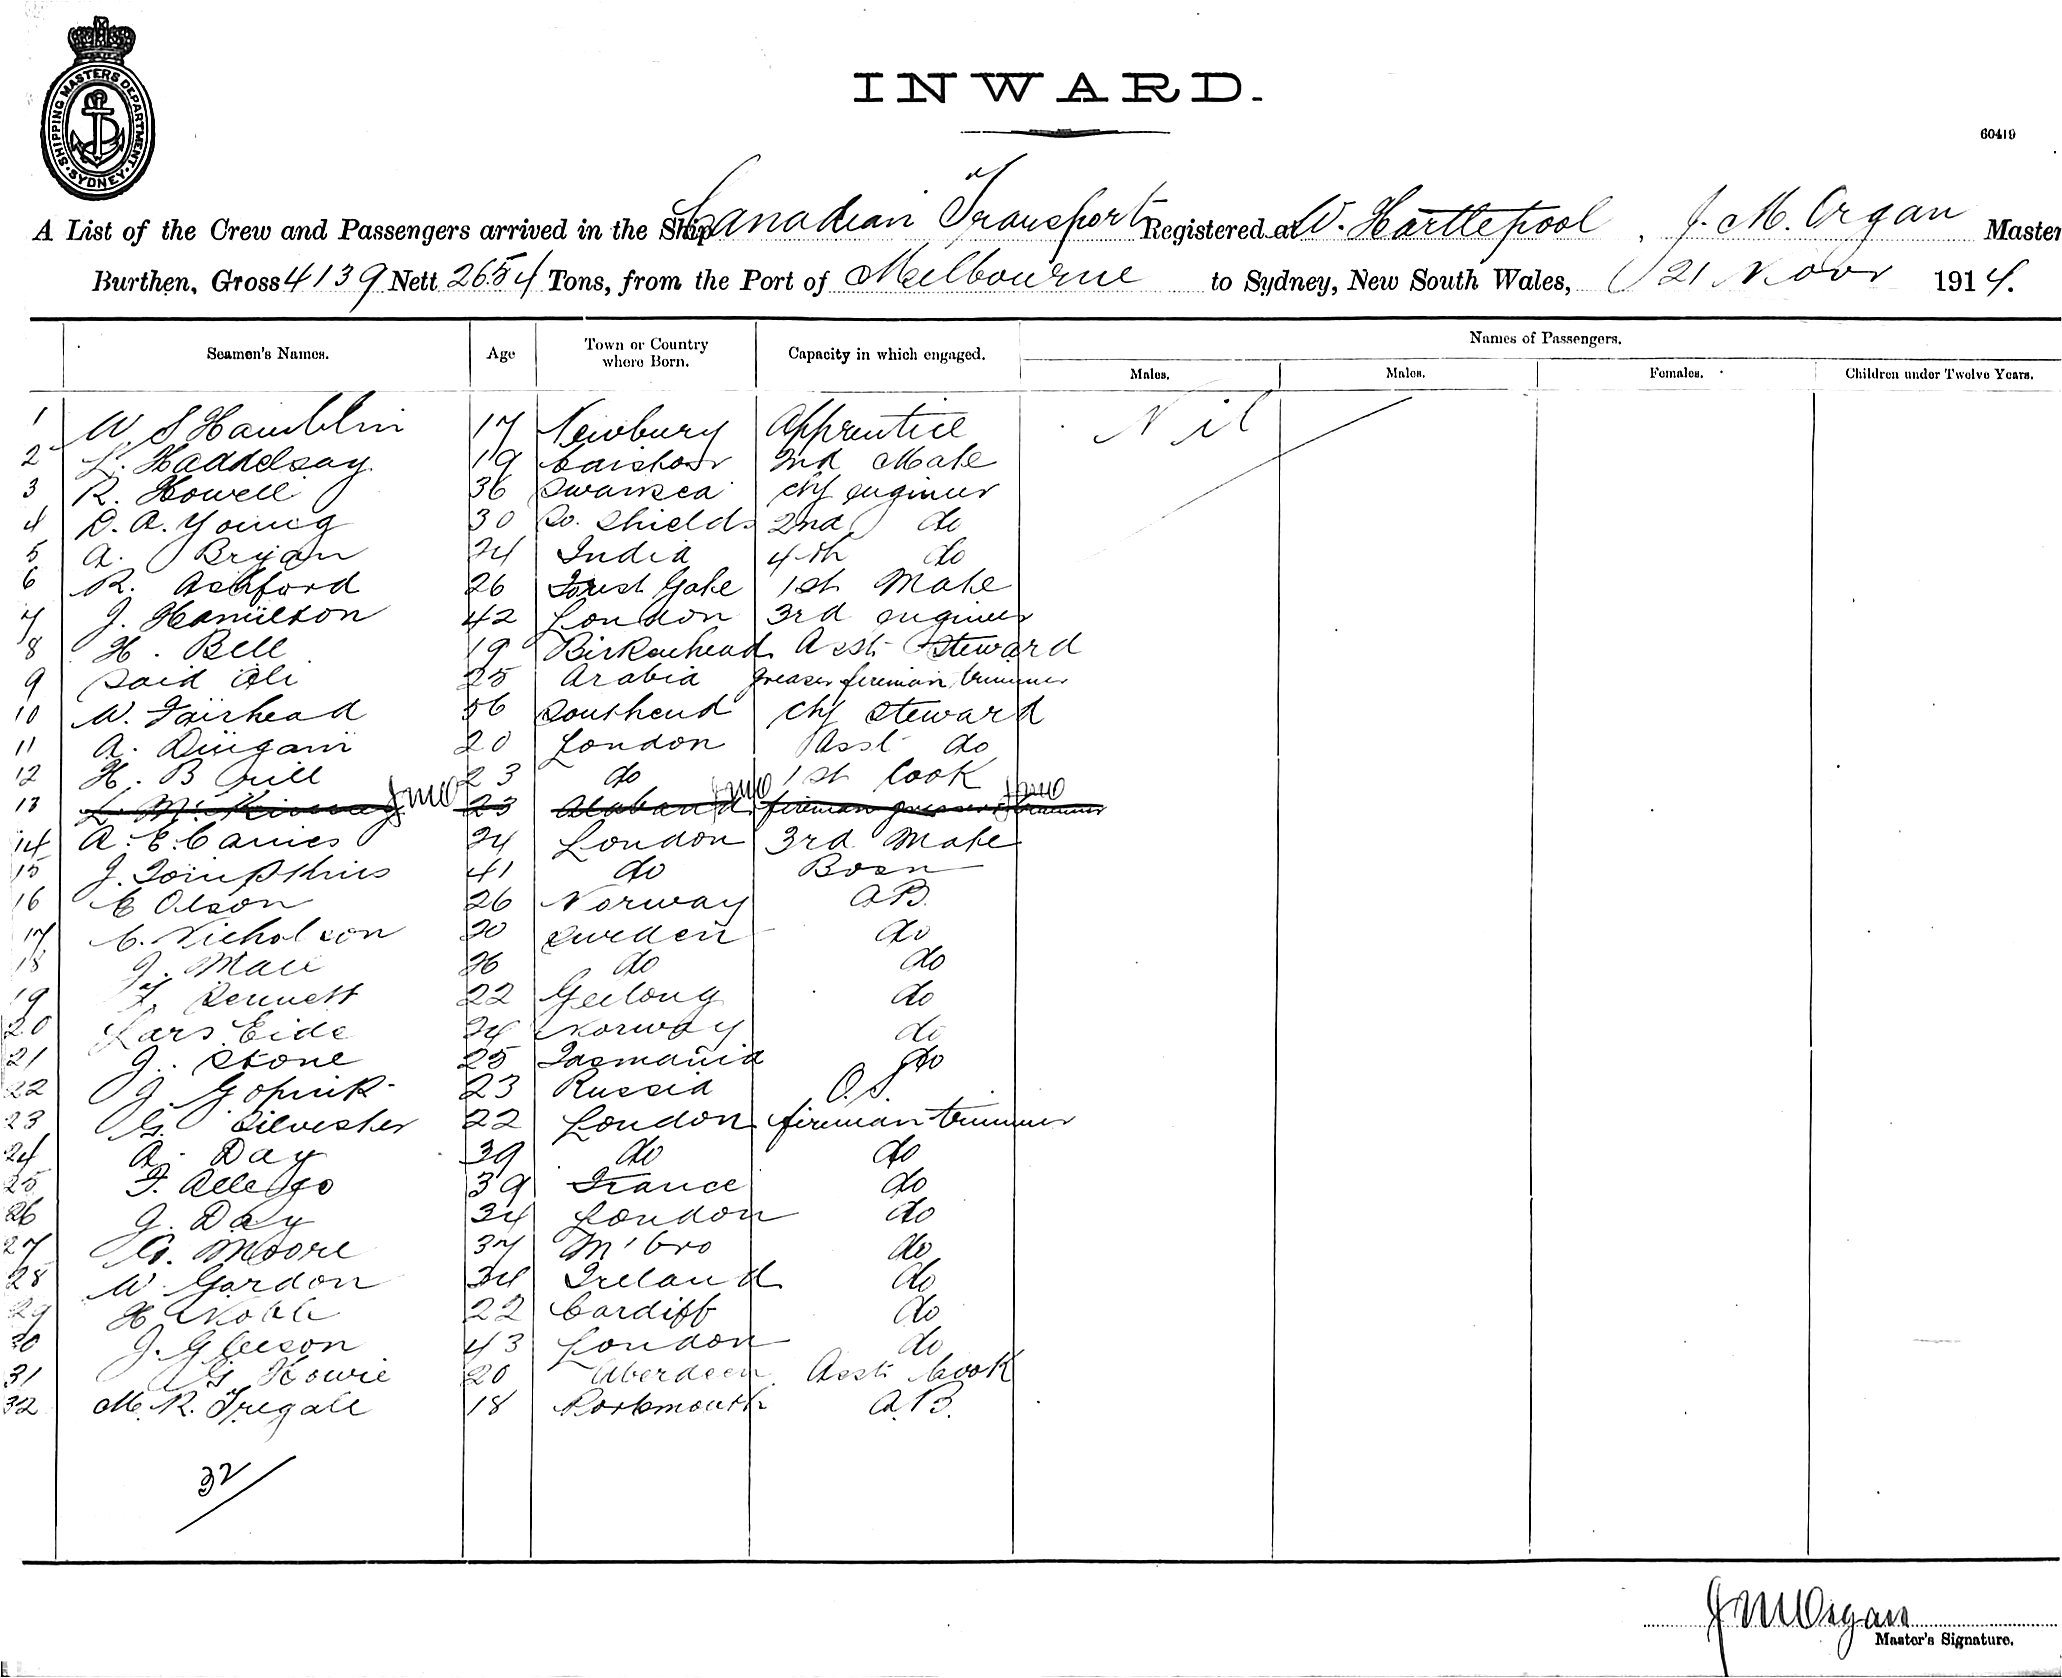 SHIPPING MASTERS DEPARTMENT
SYDNEY
INWARD.
60419
A List of the Crew and Passengers arrived in the Ship Canadian Transport Registered at W. Hartlepool, J. M. Organ Master
Burthen, Gross 4139 Nett 2654 Tons, from the Port of Melbourne to Sydney, New South Wales, 21 Novr 1914.
Seamen's Names. Age Town or Country where Born. Capacity in which engaged. Names of Passengers.
Males. Males. Females. Children under Twelve Years.
1 W. S Hamblin 17 Newbury Apprentice Nil
2 L. Haddelsay 19 Caistor 2nd Mate
3 R. Howell 36 Swansea Chf engineer
4 D. A. Young 30 So. Shields 2nd do
5 A. Bryan 24 India 4th do
6 R. Ashford 26 Forest Gate 1st Mate
7 J. Hamilton 42 London 3rd engineer
8 H. Bell 19 Birkenhead Asst Steward
9 Said Ali 25 Arabia greaser fireman trimmer
10 W. Fairhead 56 Southend Chf Steward
11 A. 20 London Asst do
12 H. B Gill 23 do 1st Cook
13 23 fireman greaser trimmer JMO JMO JMO
14 A. E. 24 London 3rd Mate
15 J. 41 do Bosn
16 E Olson 26 Norway A B.
17 C. Nicholson 30 Sweden do
18 J. 36 do do
19 F. Bennett 22 Geelong do
20 Lars Eide 24 Norway do
21 J. Stone 25 Tasmania do
22 J. 23 Russia O. S.
23 G. Silvester 22 London fireman trimmer
24 A. Day 39 do do
25 F. 39 France do
26 J. Day 34 London do
27 G. Moore 37 M'bro do
28 W Gordon 34 Ireland do
29 H Noble 22 Cardiff do
30 J. Gleeson 43 London do
31 G Howie 20 Aberdeen Asst Cook
32 M. R. Tregale 18 Portsmouth A. B.
32
J M Organ
Master's Signature.